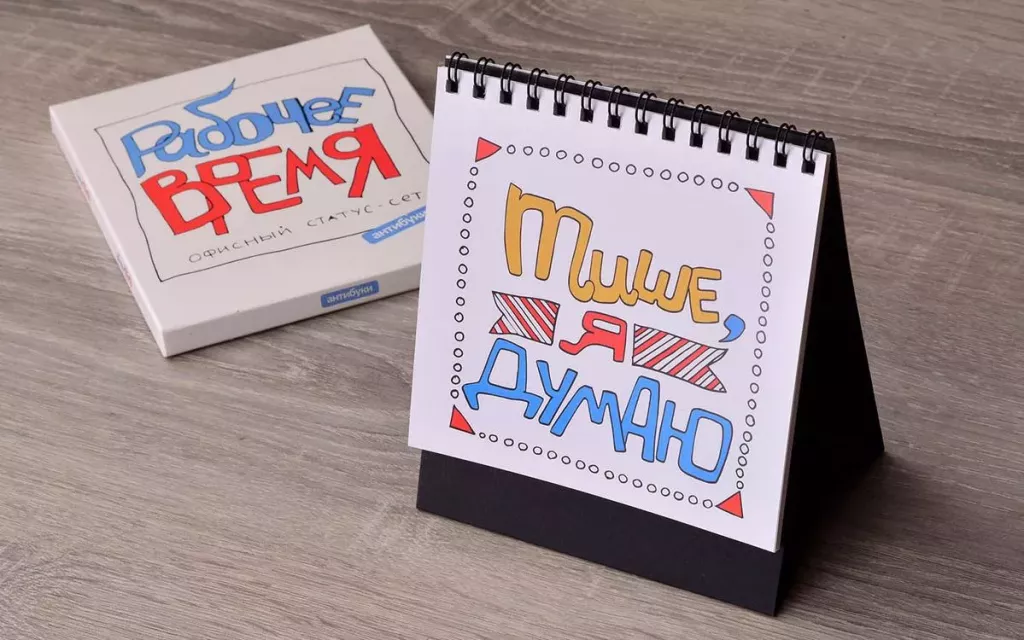 Рабочее
ВРЕМЯ
ОФИСНЫЙ СТАТУС-СЕТ
антибуки
антибуки
Тише,
Я
ДУМАЮ